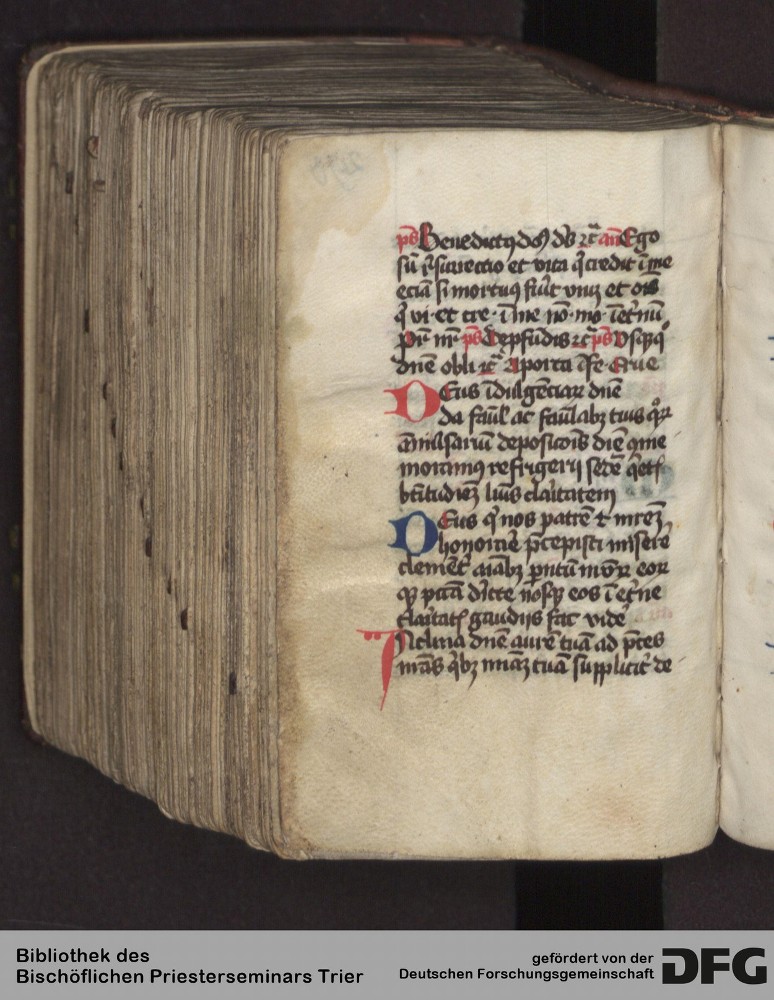 ps Benedictꝯ dn̄s dſ rc̄ an̄ Ego
ſū r̄ſurrectio et vita q̄ credit ī me
eciā ſi mortuꝯ fūit viuꝫ et oīs
q̄ vi · et cre · ī me nō · mo · īet̄nū
Pr̄ nr̄ ps Depfūdis rc̄ ps Vſq̄q̄
dn̄e obli rc̄ A porta īfe · Erue
Deus īdulgēciaꝝ dn̄e
da faūl ac faūlabꝫ tuis qͦꝝ
ānīuſariū depoſicōis diē q̄me
moramꝯ refrigerij ſedē q̄et
btītudīeꝫ luīs claītatem
Deus q̄ nos patrē ⁊ mr̄eꝫ
honorare p̄cepiſti miſere
clemēt aīabꝫ pn̄tū nr̄oꝝ eoꝝ
qꝫ pc̄cā dītte noſqꝫ eos ī et̄ne
claītatis gaudijs fac videre
Inclina dn̄e aurē tuā ad p̄ces
nr̄as q̄bꝫ mīaꝫ tuā ſupplicit̄ de
Bibliothek des
Bischöflichen Priesterseminars Trier
gefördert von der
Deutschen Forschungsgemeinschaft
DFG